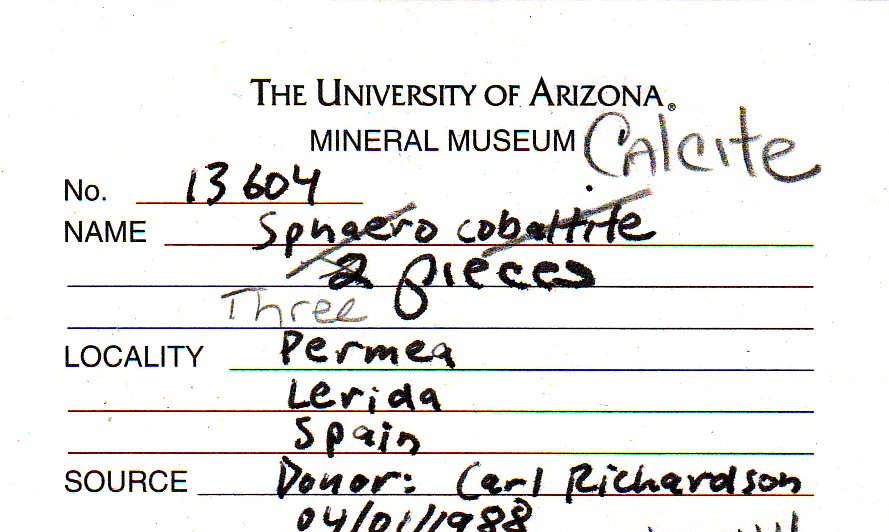 THE UNIVERSITY OF ARIZONA®
MINERAL MUSEUM Calcite
No. 13604
NAME Sphaero cobaltite
2 pieces
Three
LOCALITY Permea
Lerida
Spain
SOURCE Donor: Carl Richardson
04/01/1988